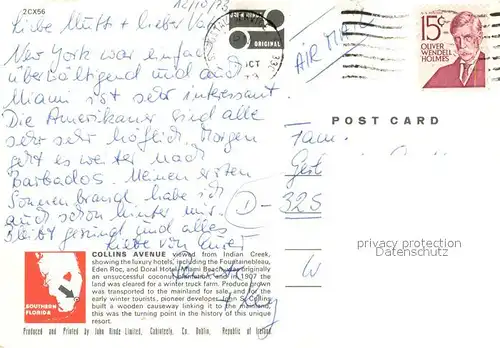 2CX56
12/10/73
Liebe Mutti + lieber Vati
New York war einfach
überwältigend und auch
Miami ist sehr interessant.
Die Amerikaner sind alle
sehr sehr höflich. Morgen
geht es weiter nach
Barbados. Meinen ersten
Sonnenbrand habe ich
auch schon hinter mir.
Bleibt gesund und alles
Liebe von Eurer
ORIGINAL
OCT
AIR MAIL
15¢
OLIVER
WENDELL
HOLMES
POST CARD
Fam.
D-325
W
privacy protection
Datenschutz
SOUTHERN
FLORIDA
COLLINS AVENUE viewed from Indian Creek,
showing the luxury hotels, including the Fountainebleau,
Eden Roc, and Doral Hotel. Miami Beach was originally
an unsuccessful coconut plantation, and in 1907 the
land was cleared for a winter truck farm. Produce grown
was transported to the mainland for sale, and for the
early winter tourists, pioneer developer John S. Collins
built a wooden causeway linking it to the mainland,
this was the turning point in the history of this unique
resort.
Produced and Printed by John Hinde Limited, Cabinteely, Co. Dublin, Republic of Ireland.